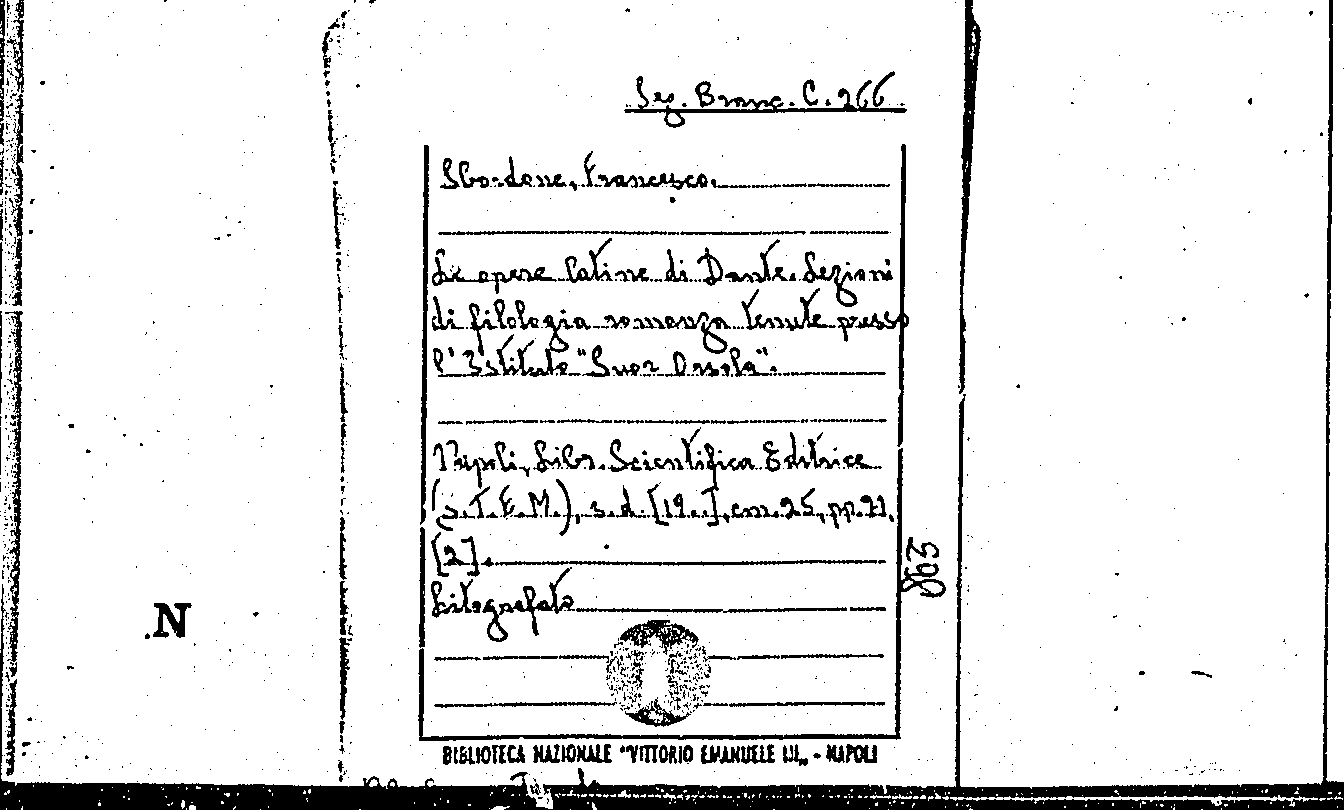 Sez. Branc. C. 266
Sbordone, Francesco.
Le opere latine di Dante. Lezioni
di filologia romanza tenute presso
l'Istituto "Suor Orsola".
Napoli, Libr. Scientifica Editrice
(s.T.E.M.), s.d. [19..], cm. 25, pp. 91,
[2].
Litografato
863
N
BIBLIOTECA NAZIONALE "VITTORIO EMANUELE III„ - NAPOLI